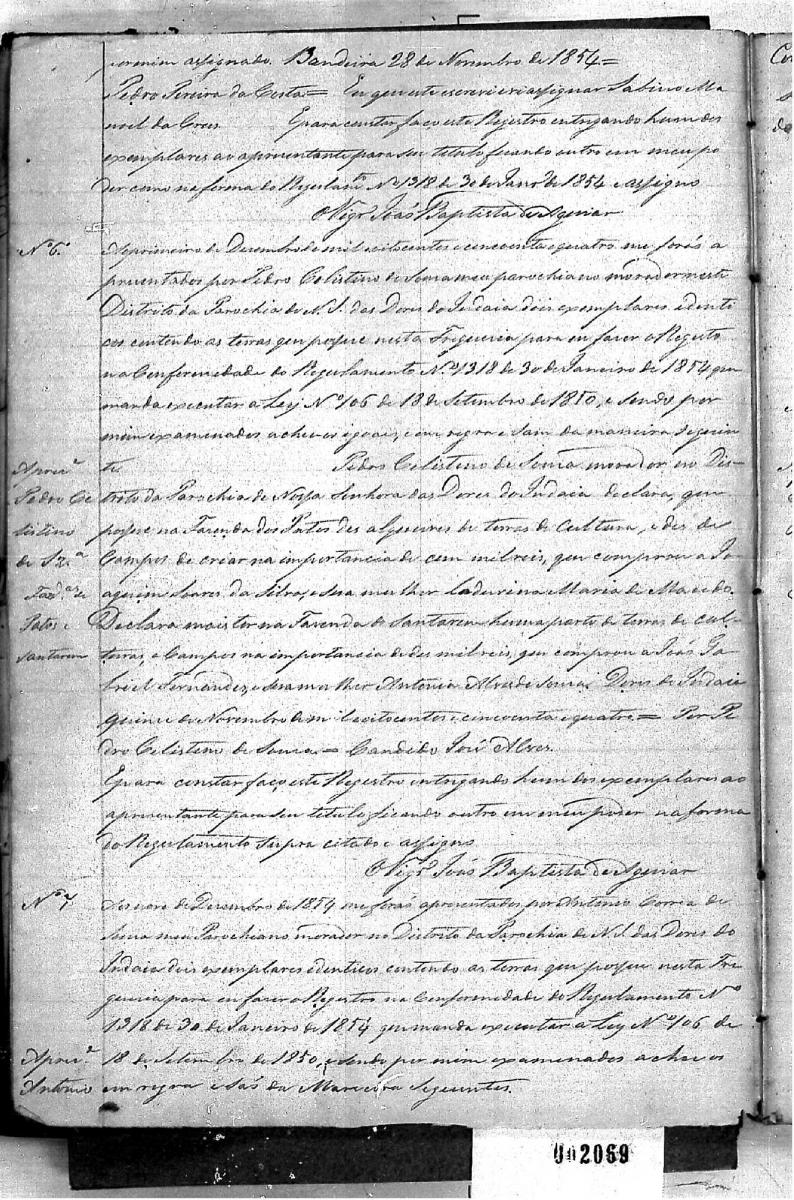 assignado. Bandeira 28 de Novembro de 1854=
Pedro Pereira da Costa= Eu que este escrevi e vi assignar Sabino Ma
noel da Crus Epara constar faço este Registro entregando hum dos
exemplares ao apresentante para seu titulo ficando outro em meu po
der como na forma do Regulamto No 1318 de 30 de Janro de 1854 e assigno
O Vigro Joás Baptista de Aguiar
No 6o Aoprimeiro de Desembro de mil eoitocentos e cincoenta e quatro me forás a
prezentados por Pedro Celistino de Sousa meu parochiano morador neste
Distrito da Parochia de N. S. das Dores do Indaia dois exemplares identi
cos contendo as terras que possue nesta Freguezia para eu faser o Registo
na Conformidade do Regulamento No 1318 de 30 de Janeiro de 1854 que
manda executar a Ley No 106 de 18 de Setembro de 1850, e sendo por
mim examenados achei os iguais, e em regra e sam da maneira seguin
te Pedro Celisteno de Sousa morador no Dis-
Pedro Ce trito da Parochia de Nossa Senhora das Dores do Indaia declara, que
listino possue na Fazenda dos Patos des alqueires de terras de Cultura, e des de
de Sz.a Campos de criar na importancia de cem mil reis, que comprou a Jo
Fazda de aquim Soares da Silva, e sua mulher Maria de Macedo.
Patos e Declara mais ter na Fazenda de Santarem huma parte de terras de cul
santarem turas, e Campos na importancia de des mil reis, que comprou a Joás Ga
briel Fernandez, e sua mulher Antonia Alves de Sousa. Dores do Indaia
quinse de Novembro de mil eoitocentos e cincoenta e quatro= Por Pe
dro Celisteno de Sousa= Candido José Alves.
Epara constar faço este Registro entregando hum dos exemplares ao
apresentante para seu titulo ficando outro em meu poder na forma
do Regulamento supra citado e assigno
O Vigro Joás Baptista de Aguiar
No 7 de Desembro de 1854 me forás apresentados por Antonio Correa de
meu Parochiano morador no Distrito da Parochia de N. S. das Dores do
Indaia dois exemplares identicos contendo as terras que possue nesta Fre
guezia para eu faser o Registro na Conformidade do Regulamento No
1318 de 30 de Janeiro de 1854 que manda executar a Ley No 106 de
18 de Setembro de 1850, e sendo por mim examenados achei os
Antonio em regra e sás da Maneira Seguintes.
002069